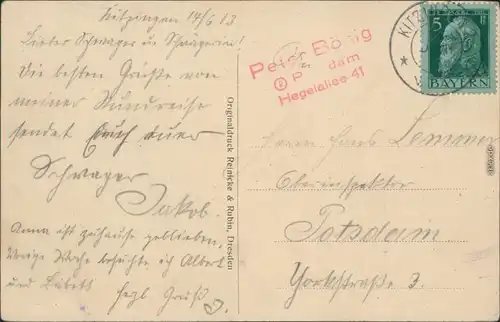 Kitzingen 14/6 13
Lieber Schwager u Schwägerin!
Die besten Grüße von
meiner Rundreise
sendet Euch euer
Schwager
Jakob.
Anna ist zuhause geblieben,
Vorige Woche besuchte ich Albert
und Babett Hezl Gruß J.
Originaldruck Reinicke & Rubin, Dresden
Peter Bönig
P dam
Hegelallee 41
KITZ
5
BAYERN
Herrn
Oberinspektor
Potsdam
Yorkstraße 3.